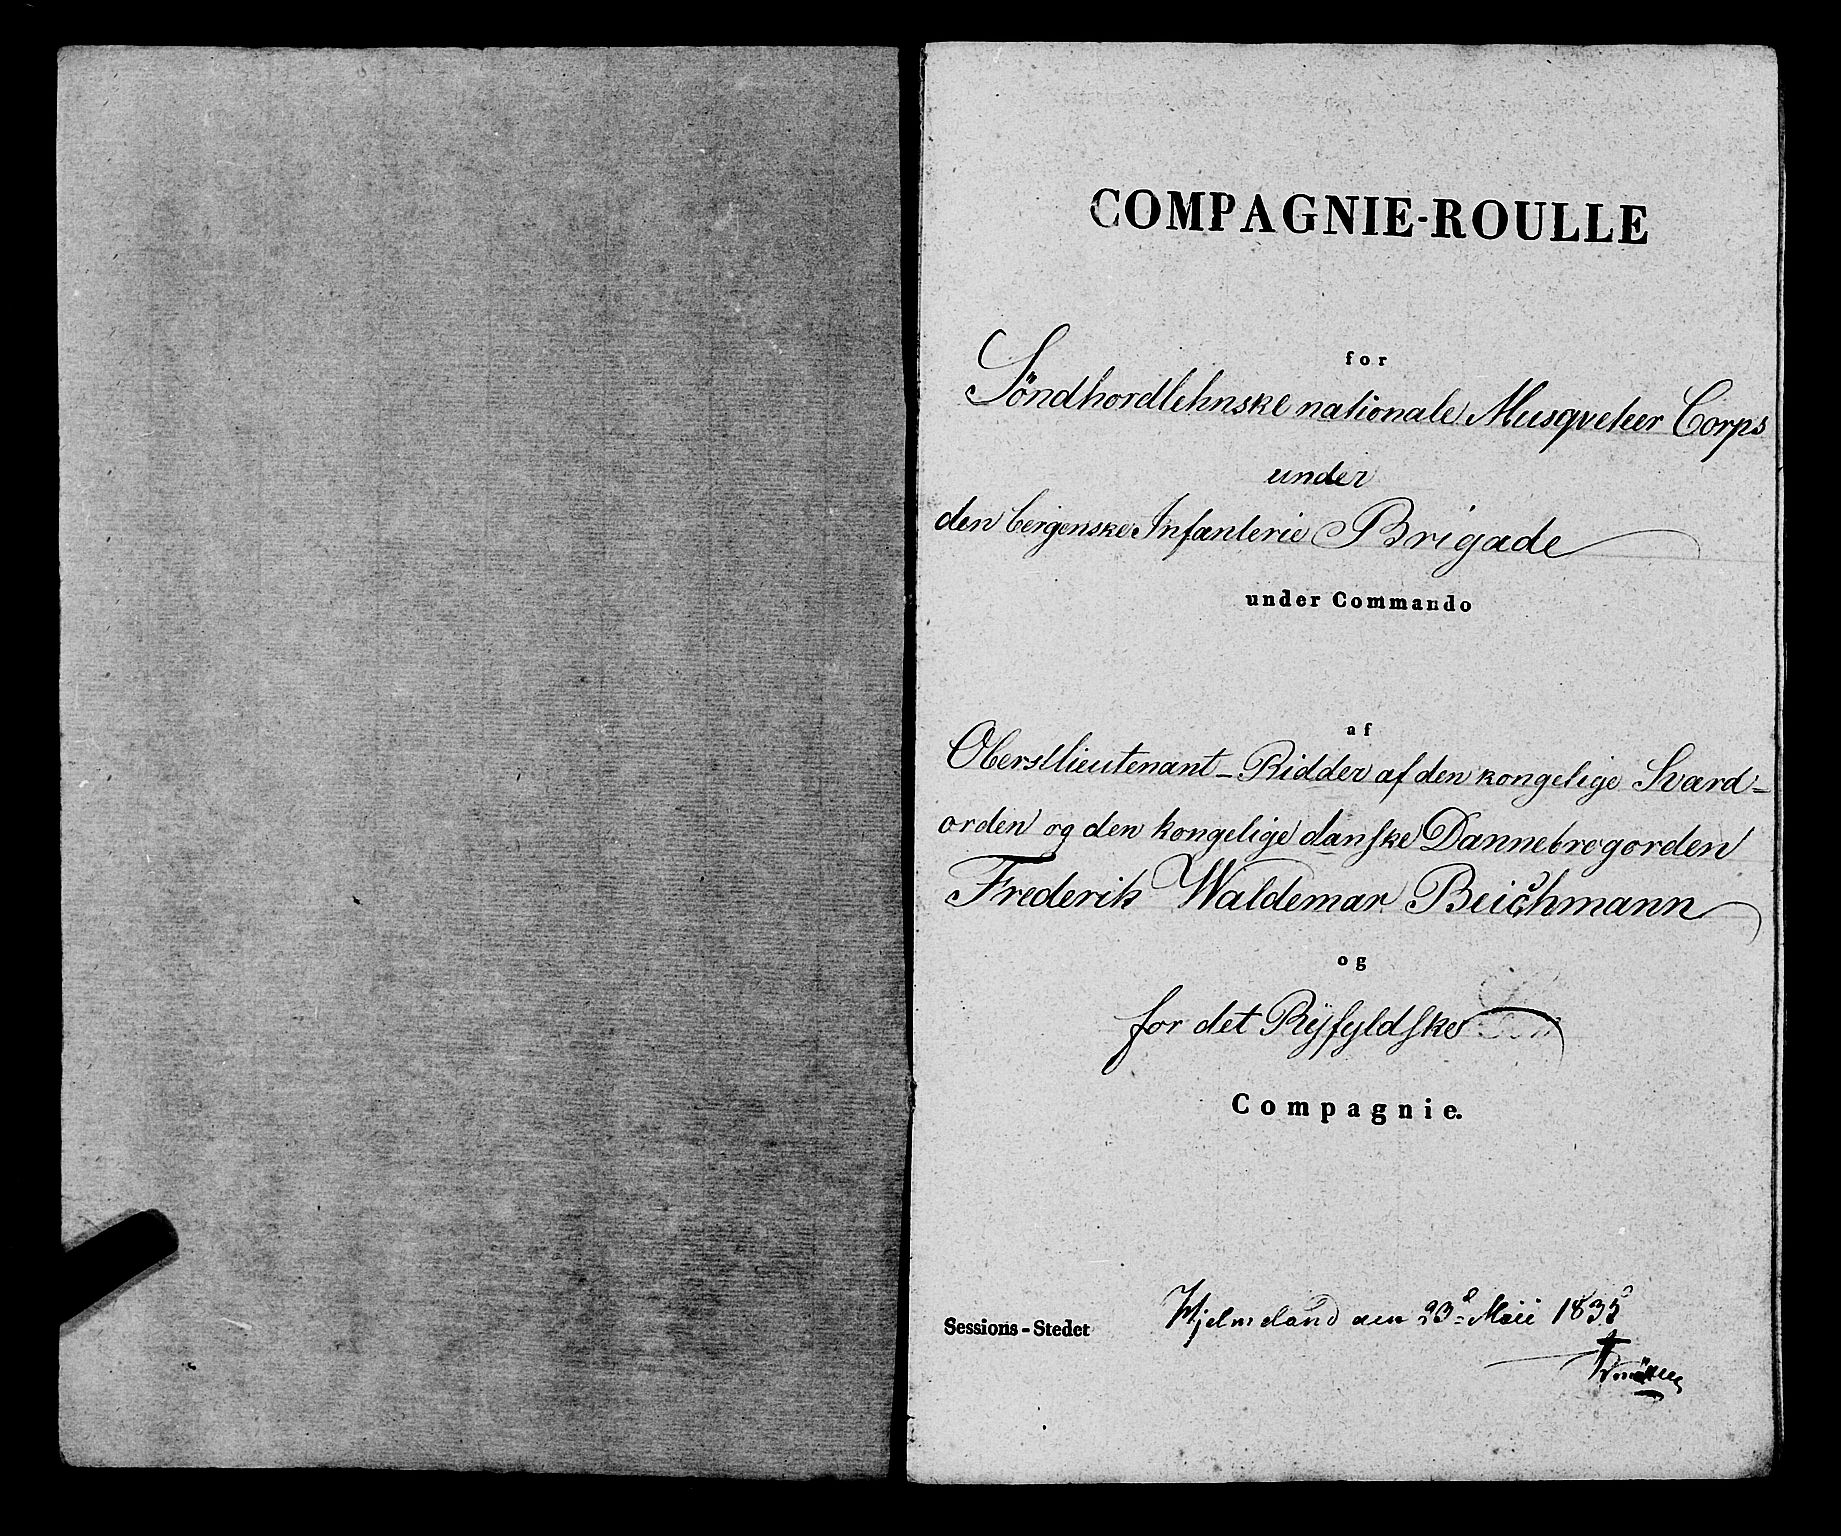 COMPAGNIE-ROULLE
for
Söndhordlehnske nationale Musqveteer Corps
under
den bergenske Infanterie Brigade
under Commando
af
Oberstlieutenant - Ridder af den kongelige Sværd-
orden og den kongelige danske Dannebrogorden
Frederik Waldemar Beichmann
og
for det Ryfyldske
Compagnie.
Sessions-Stedet Hjelmeland den 23d Maii 1835